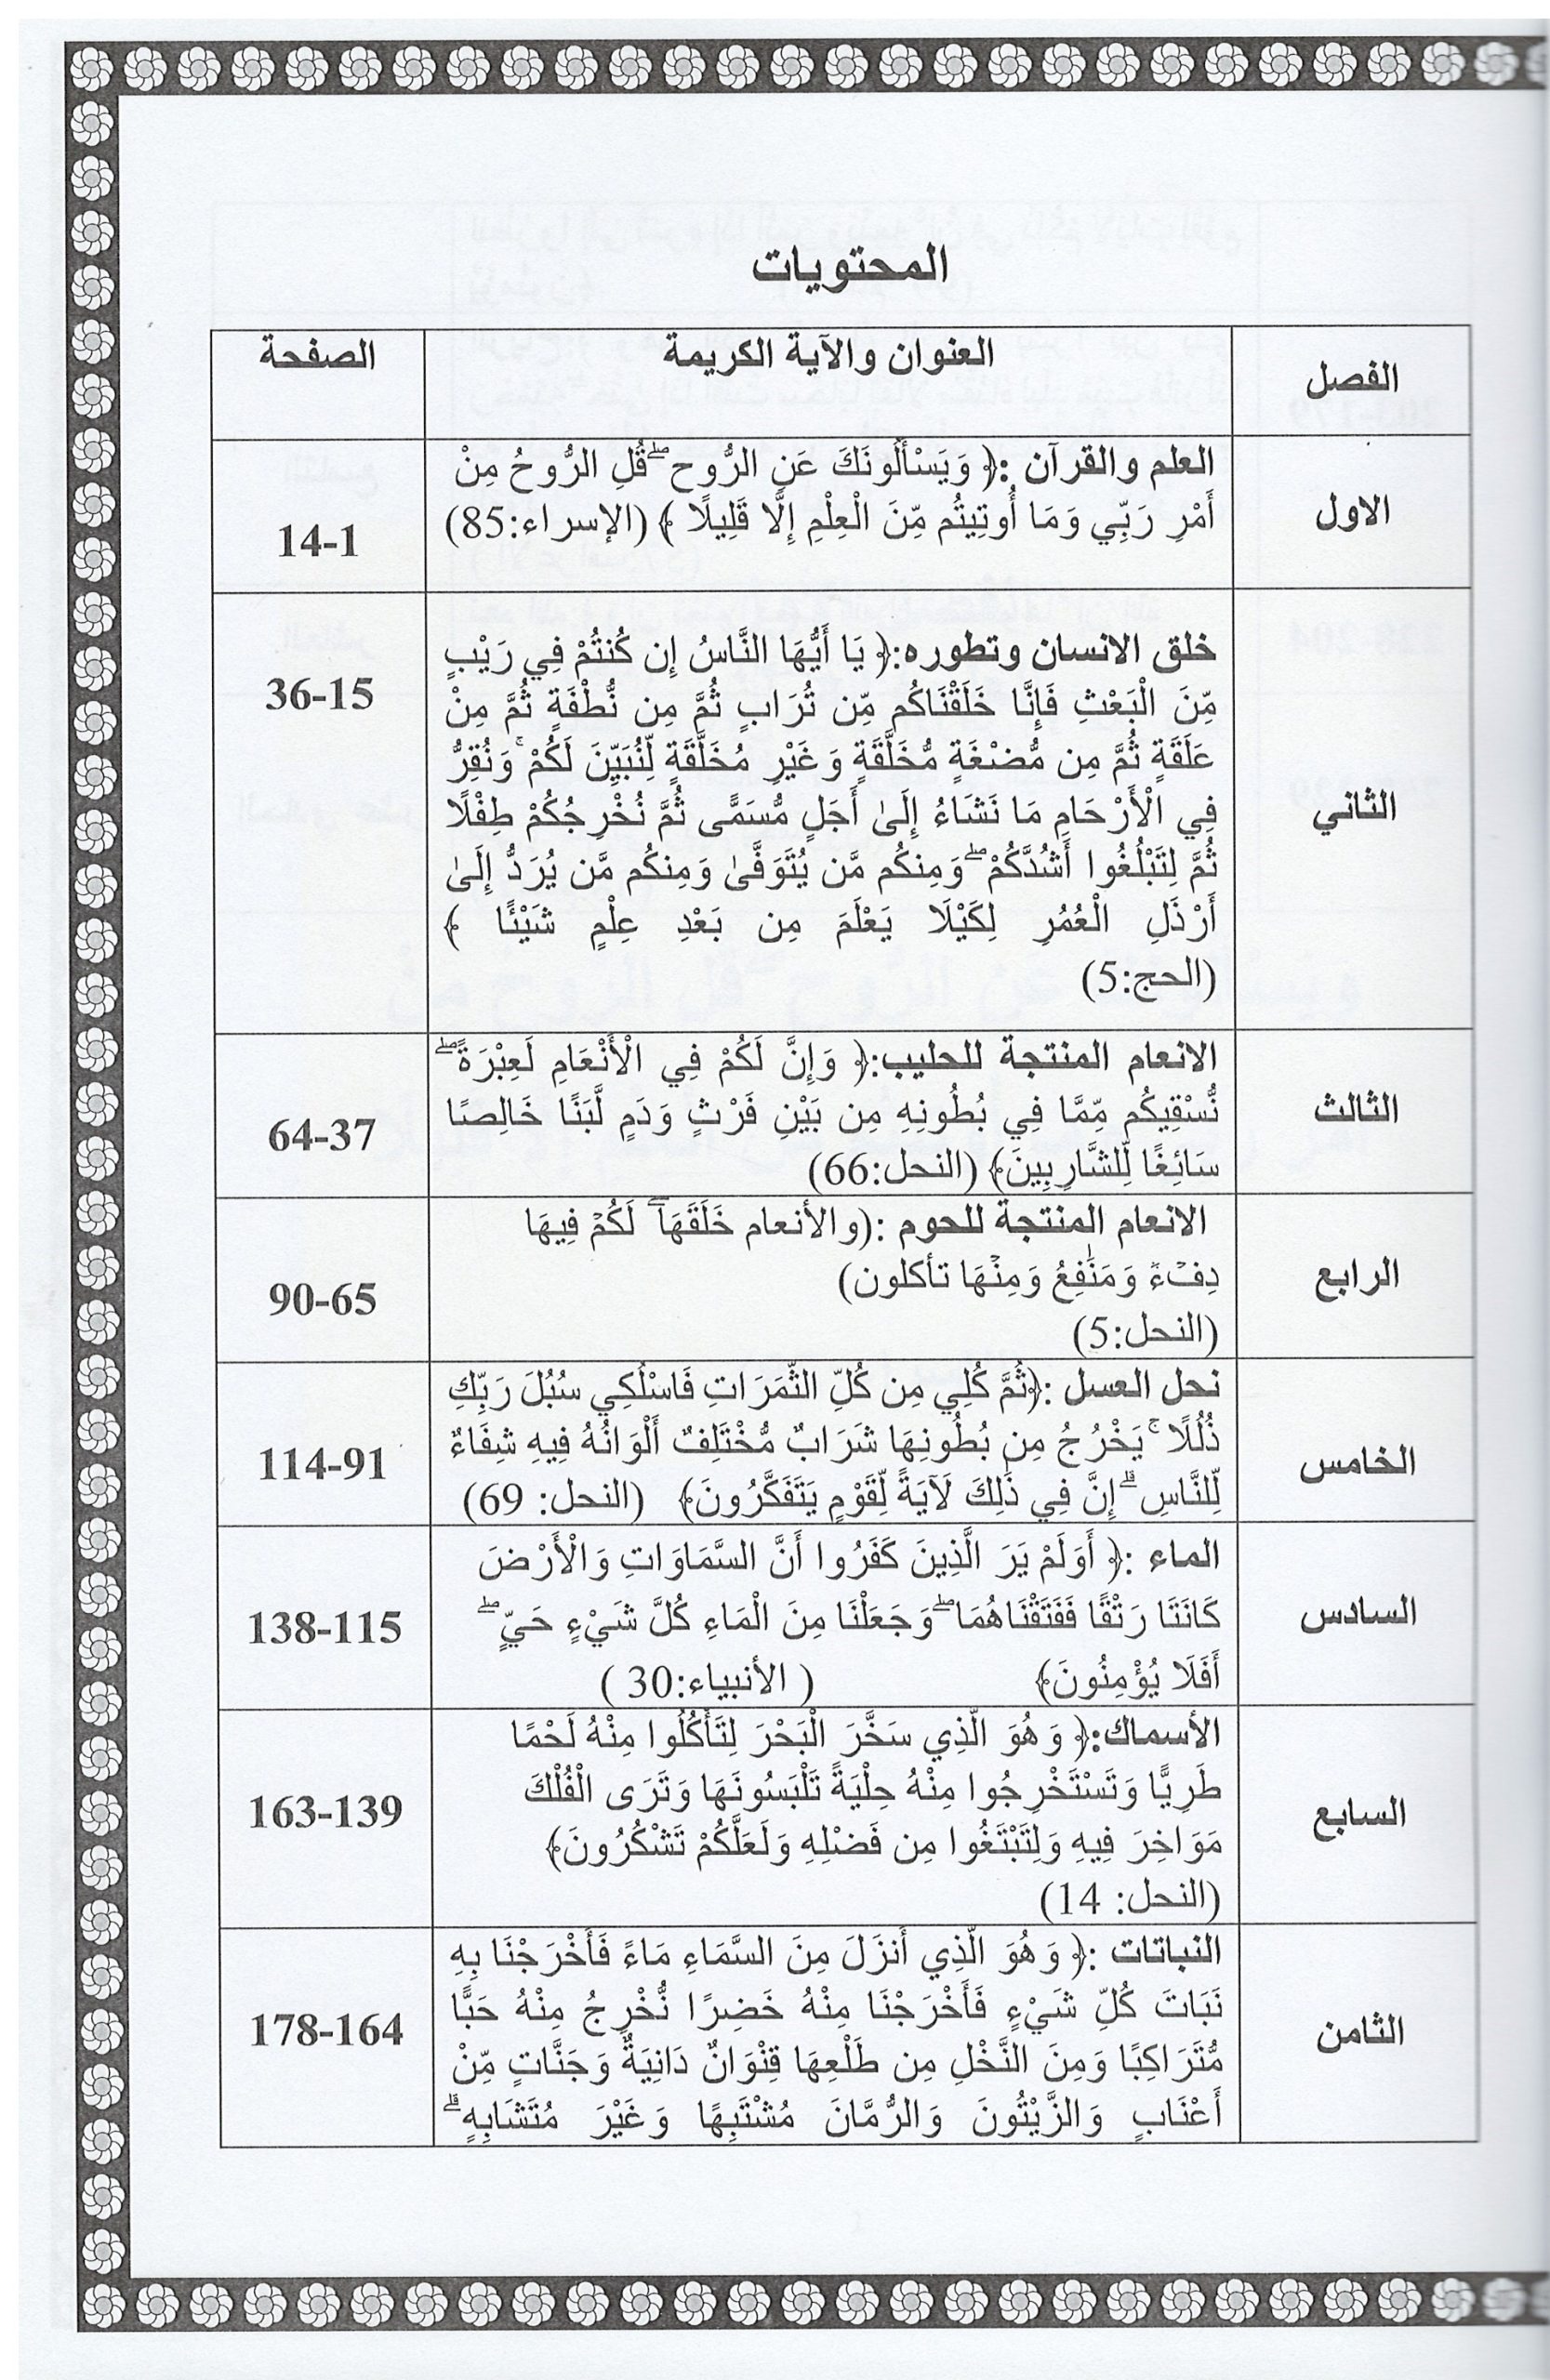 المحتويات
الفصل العنوان والآية الكريمة الصفحة
الاول
العلم والقرآن :﴿ وَيَسْأَلُونَكَ عَنِ الرُّوحِ ۖ قُلِ الرُّوحُ مِنْ
أَمْرِ رَبِّي وَمَا أُوتِيتُم مِّنَ الْعِلْمِ إِلَّا قَلِيلًا ﴾ (الإسراء:85)
14-1
الثاني
خلق الانسان وتطوره:﴿ يَا أَيُّهَا النَّاسُ إِن كُنتُمْ فِي رَيْبٍ
مِّنَ الْبَعْثِ فَإِنَّا خَلَقْنَاكُم مِّن تُرَابٍ ثُمَّ مِن نُّطْفَةٍ ثُمَّ مِنْ
عَلَقَةٍ ثُمَّ مِن مُّضْغَةٍ مُّخَلَّقَةٍ وَغَيْرِ مُخَلَّقَةٍ لِّنُبَيِّنَ لَكُمْ ۚ وَنُقِرُّ
فِي الْأَرْحَامِ مَا نَشَاءُ إِلَىٰ أَجَلٍ مُّسَمًّى ثُمَّ نُخْرِجُكُمْ طِفْلًا
ثُمَّ لِتَبْلُغُوا أَشُدَّكُمْ ۖ وَمِنكُم مَّن يُتَوَفَّىٰ وَمِنكُم مَّن يُرَدُّ إِلَىٰ
أَرْذَلِ الْعُمُرِ لِكَيْلَا يَعْلَمَ مِن بَعْدِ عِلْمٍ شَيْئًا ﴾
(الحج:5)
36-15
الثالث
الانعام المنتجة للحليب:﴿ وَإِنَّ لَكُمْ فِي الْأَنْعَامِ لَعِبْرَةً ۖ
نُّسْقِيكُم مِّمَّا فِي بُطُونِهِ مِن بَيْنِ فَرْثٍ وَدَمٍ لَّبَنًا خَالِصًا
سَائِغًا لِّلشَّارِبِينَ﴾ (النحل:66)
64-37
الرابع
الانعام المنتجة للحوم :(والأنعام خَلَقَهَا ۖ لَكُمْ فِيهَا
دِفْءٌ وَمَنَٰفِعُ وَمِنْهَا تأكلون)
(النحل:5)
90-65
الخامس
نحل العسل :﴿ثُمَّ كُلِي مِن كُلِّ الثَّمَرَاتِ فَاسْلُكِي سُبُلَ رَبِّكِ
ذُلُلًا ۚ يَخْرُجُ مِن بُطُونِهَا شَرَابٌ مُّخْتَلِفٌ أَلْوَانُهُ فِيهِ شِفَاءٌ
لِّلنَّاسِ ۗ إِنَّ فِي ذَٰلِكَ لَآيَةً لِّقَوْمٍ يَتَفَكَّرُونَ﴾ (النحل: 69)
114-91
السادس
الماء :﴿ أَوَلَمْ يَرَ الَّذِينَ كَفَرُوا أَنَّ السَّمَاوَاتِ وَالْأَرْضَ
كَانَتَا رَتْقًا فَفَتَقْنَاهُمَا ۖ وَجَعَلْنَا مِنَ الْمَاءِ كُلَّ شَيْءٍ حَيٍّ ۖ
أَفَلَا يُؤْمِنُونَ﴾ ( الأنبياء:30 )
138-115
السابع
الأسماك:﴿ وَهُوَ الَّذِي سَخَّرَ الْبَحْرَ لِتَأْكُلُوا مِنْهُ لَحْمًا
طَرِيًّا وَتَسْتَخْرِجُوا مِنْهُ حِلْيَةً تَلْبَسُونَهَا وَتَرَى الْفُلْكَ
مَوَاخِرَ فِيهِ وَلِتَبْتَغُوا مِن فَضْلِهِ وَلَعَلَّكُمْ تَشْكُرُونَ﴾
(النحل: 14)
163-139
الثامن
النباتات :﴿ وَهُوَ الَّذِي أَنزَلَ مِنَ السَّمَاءِ مَاءً فَأَخْرَجْنَا بِهِ
نَبَاتَ كُلِّ شَيْءٍ فَأَخْرَجْنَا مِنْهُ خَضِرًا نُّخْرِجُ مِنْهُ حَبًّا
مُّتَرَاكِبًا وَمِنَ النَّخْلِ مِن طَلْعِهَا قِنْوَانٌ دَانِيَةٌ وَجَنَّاتٍ مِّنْ
أَعْنَابٍ وَالزَّيْتُونَ وَالرُّمَّانَ مُشْتَبِهًا وَغَيْرَ مُتَشَابِهٍ ۗ
178-164